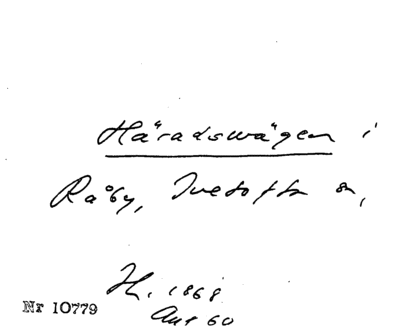 Häradswägen i
Råby, Ivetofta sn,
H. 1868
Aug 60
Nr 10779